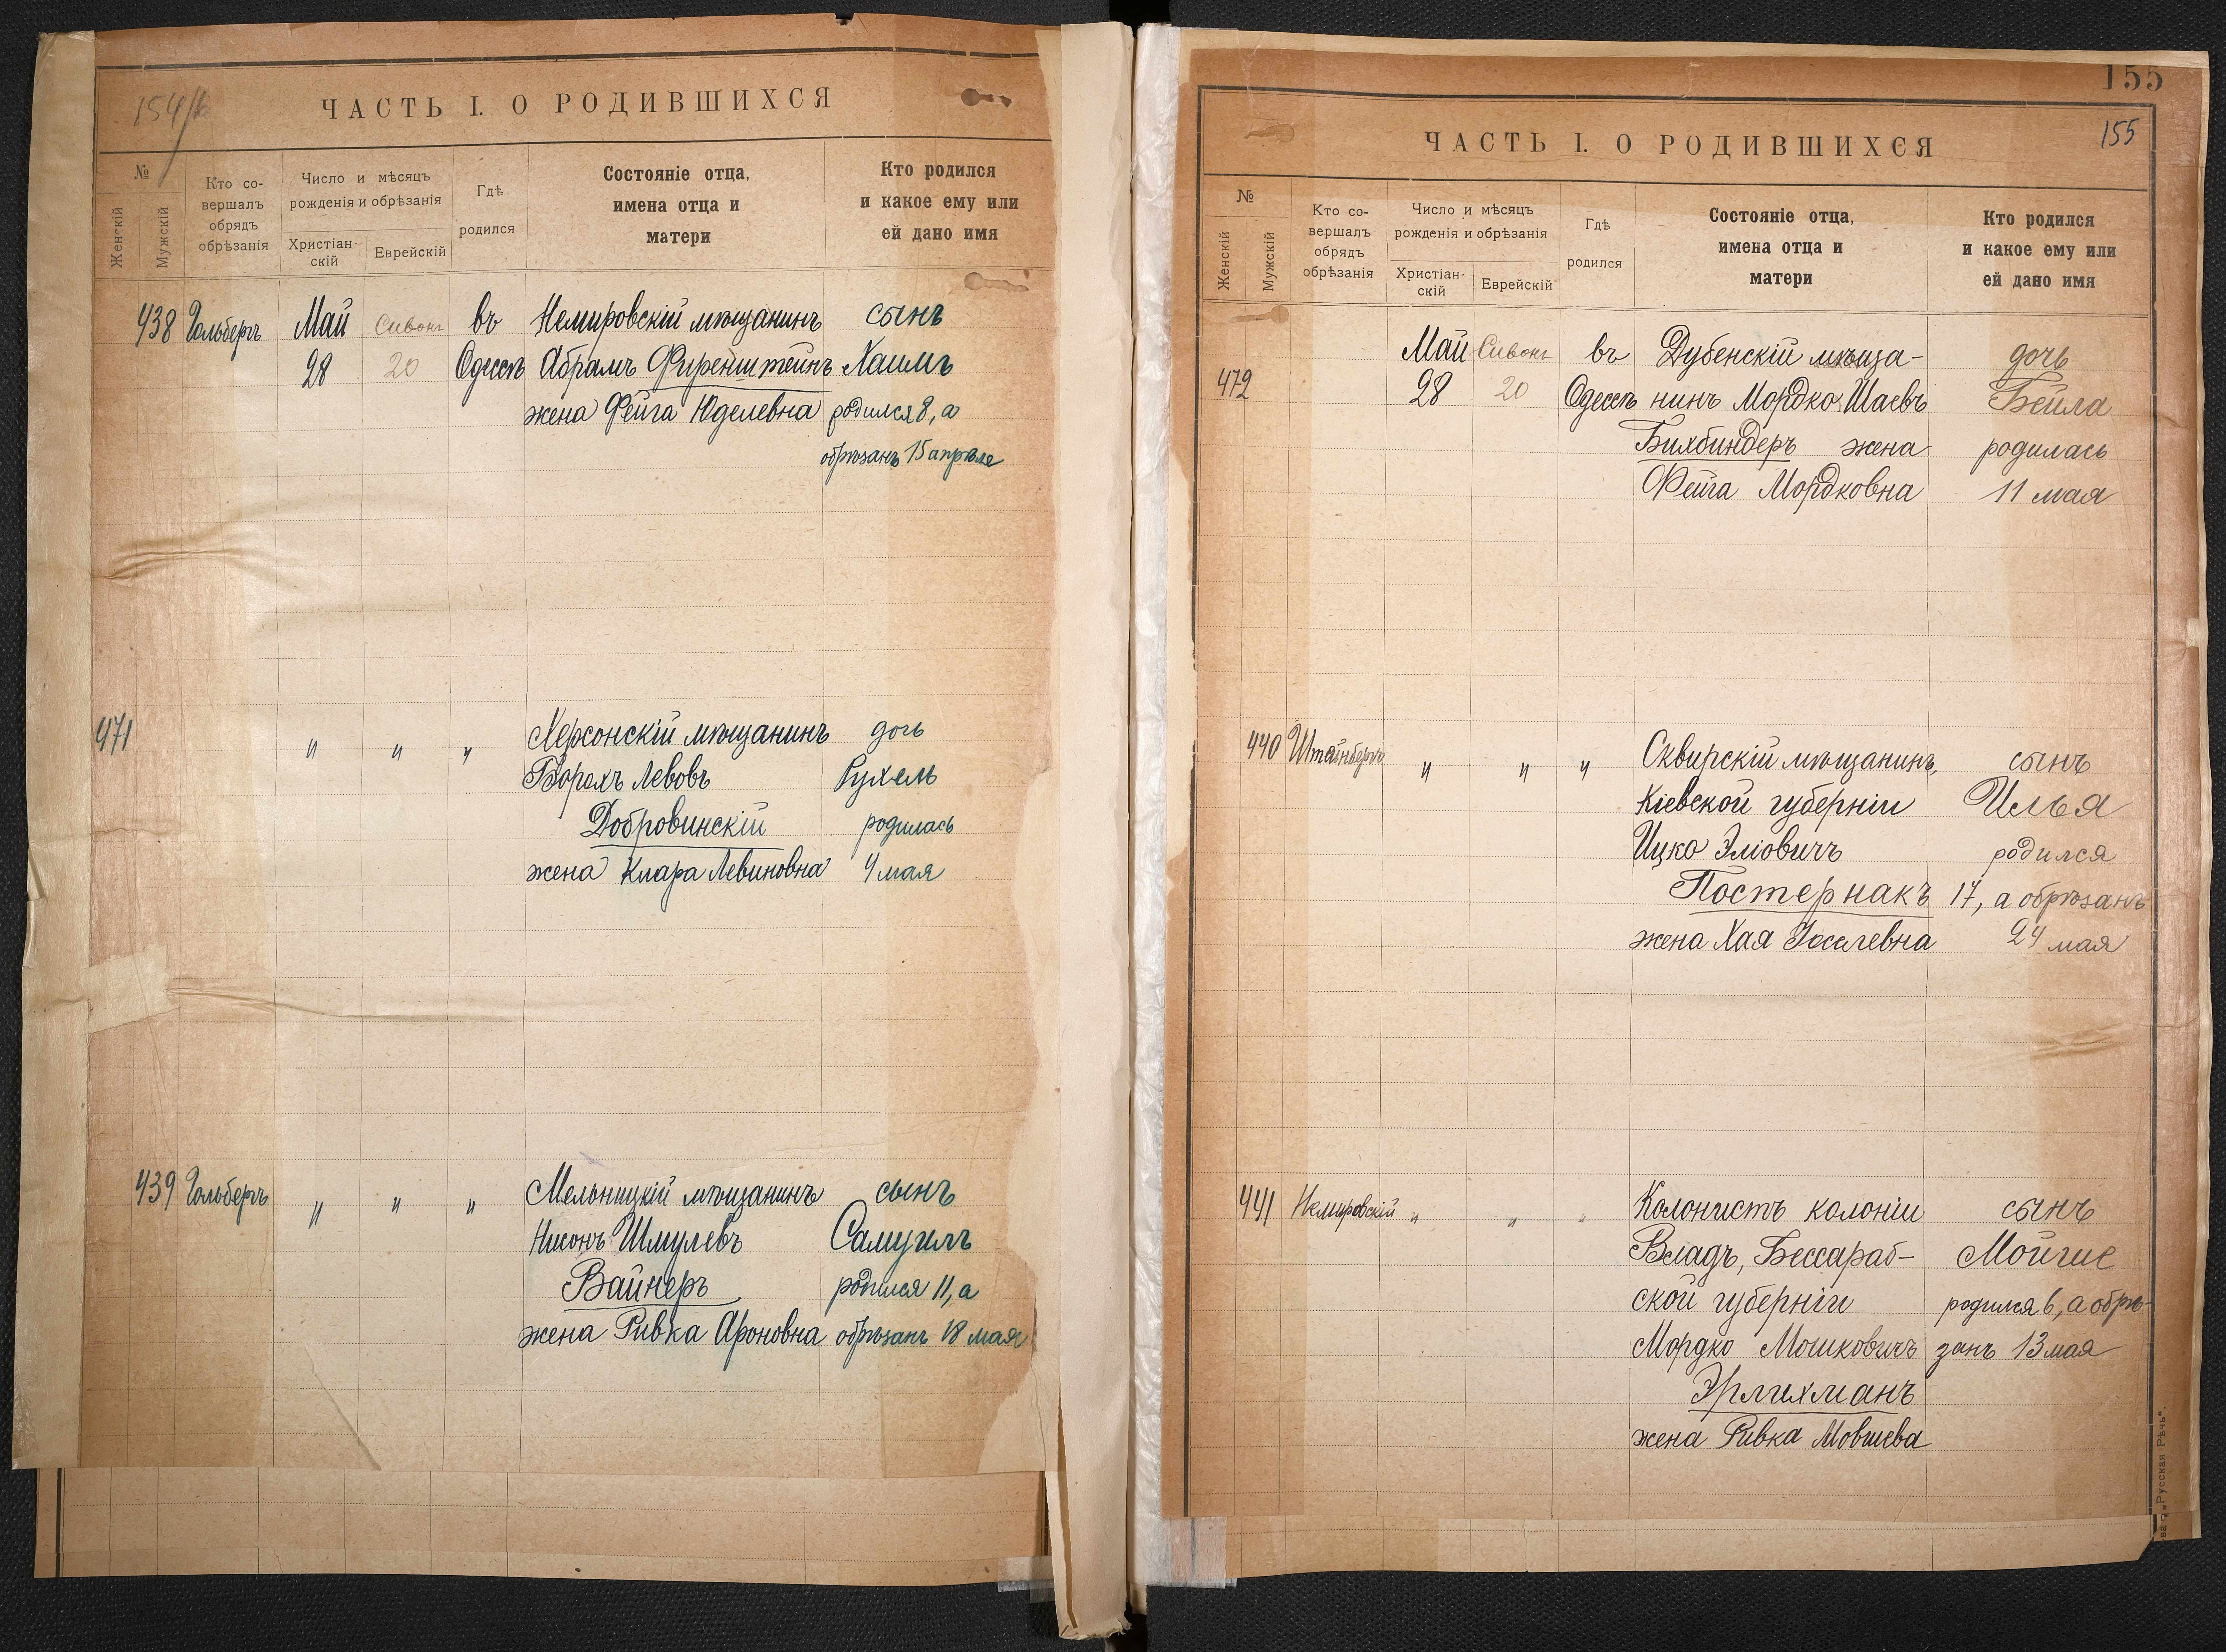 154
ЧАСТЬ I. О РОДИВШИХСЯ
№
Женскій
Мужскій
Кто со-
вершалъ
обрядъ
обрѣзанія
Число и мѣсяцъ
рожденія и обрѣзанія
Христіан-
скій
Еврейскій
Гдѣ
родился
Состояніе отца,
имена отца и
матери
Кто родился
и какое ему или
ей дано имя
438 Гольбергъ Май Сивонъ въ Немировскій мѣщанинъ сынъ
28 20 Одессѣ Абрамъ Фиренштейнъ Хаимъ
жена Фейга Юделевна родился 8, а
обрѣзанъ 15 апрѣля
471 " " " Херсонскій мѣщанинъ дочь
Борохъ Левовъ Рухель
Добровинскій родилась
жена Клара Левиновна 4 мая
439 Гольбергъ " " " Мельницкій мѣщанинъ сынъ
Нисонъ Шмулевъ Самуилъ
Вайнеръ родился 11, а
жена Ривка Ароновна обрѣзанъ 18 мая
155
155
ЧАСТЬ I. О РОДИВШИХСЯ
№
Женскій
Мужскій
Кто со-
вершалъ
обрядъ
обрѣзанія
Число и мѣсяцъ
рожденія и обрѣзанія
Христіан-
скій
Еврейскій
Гдѣ
родился
Состояніе отца,
имена отца и
матери
Кто родился
и какое ему или
ей дано имя
Май Сивонъ въ Дубенскій мѣща- дочь
472 28 20 Одессѣ нинъ Мордко Шаевъ Бейла
Бихбиндеръ жена родилась
Фейга Мордковна 11 мая
440 Штайнбергъ " " " Сквирскій мѣщанинъ, сынъ
Кіевской губерніи Илья
Ицко Эліовичъ родился
Постернакъ 17, а обрѣзанъ
жена Хая Іоселевна 24 мая
441 Немировскій " " " Колонистъ колоніи сынъ
Владъ, Бессараб- Мойше
ской губерніи родился 6, а обрѣ-
Мордко Мошковичъ занъ 13 мая
Эрлихманъ
жена Ривка Мовшева
"Русская Рѣчь".